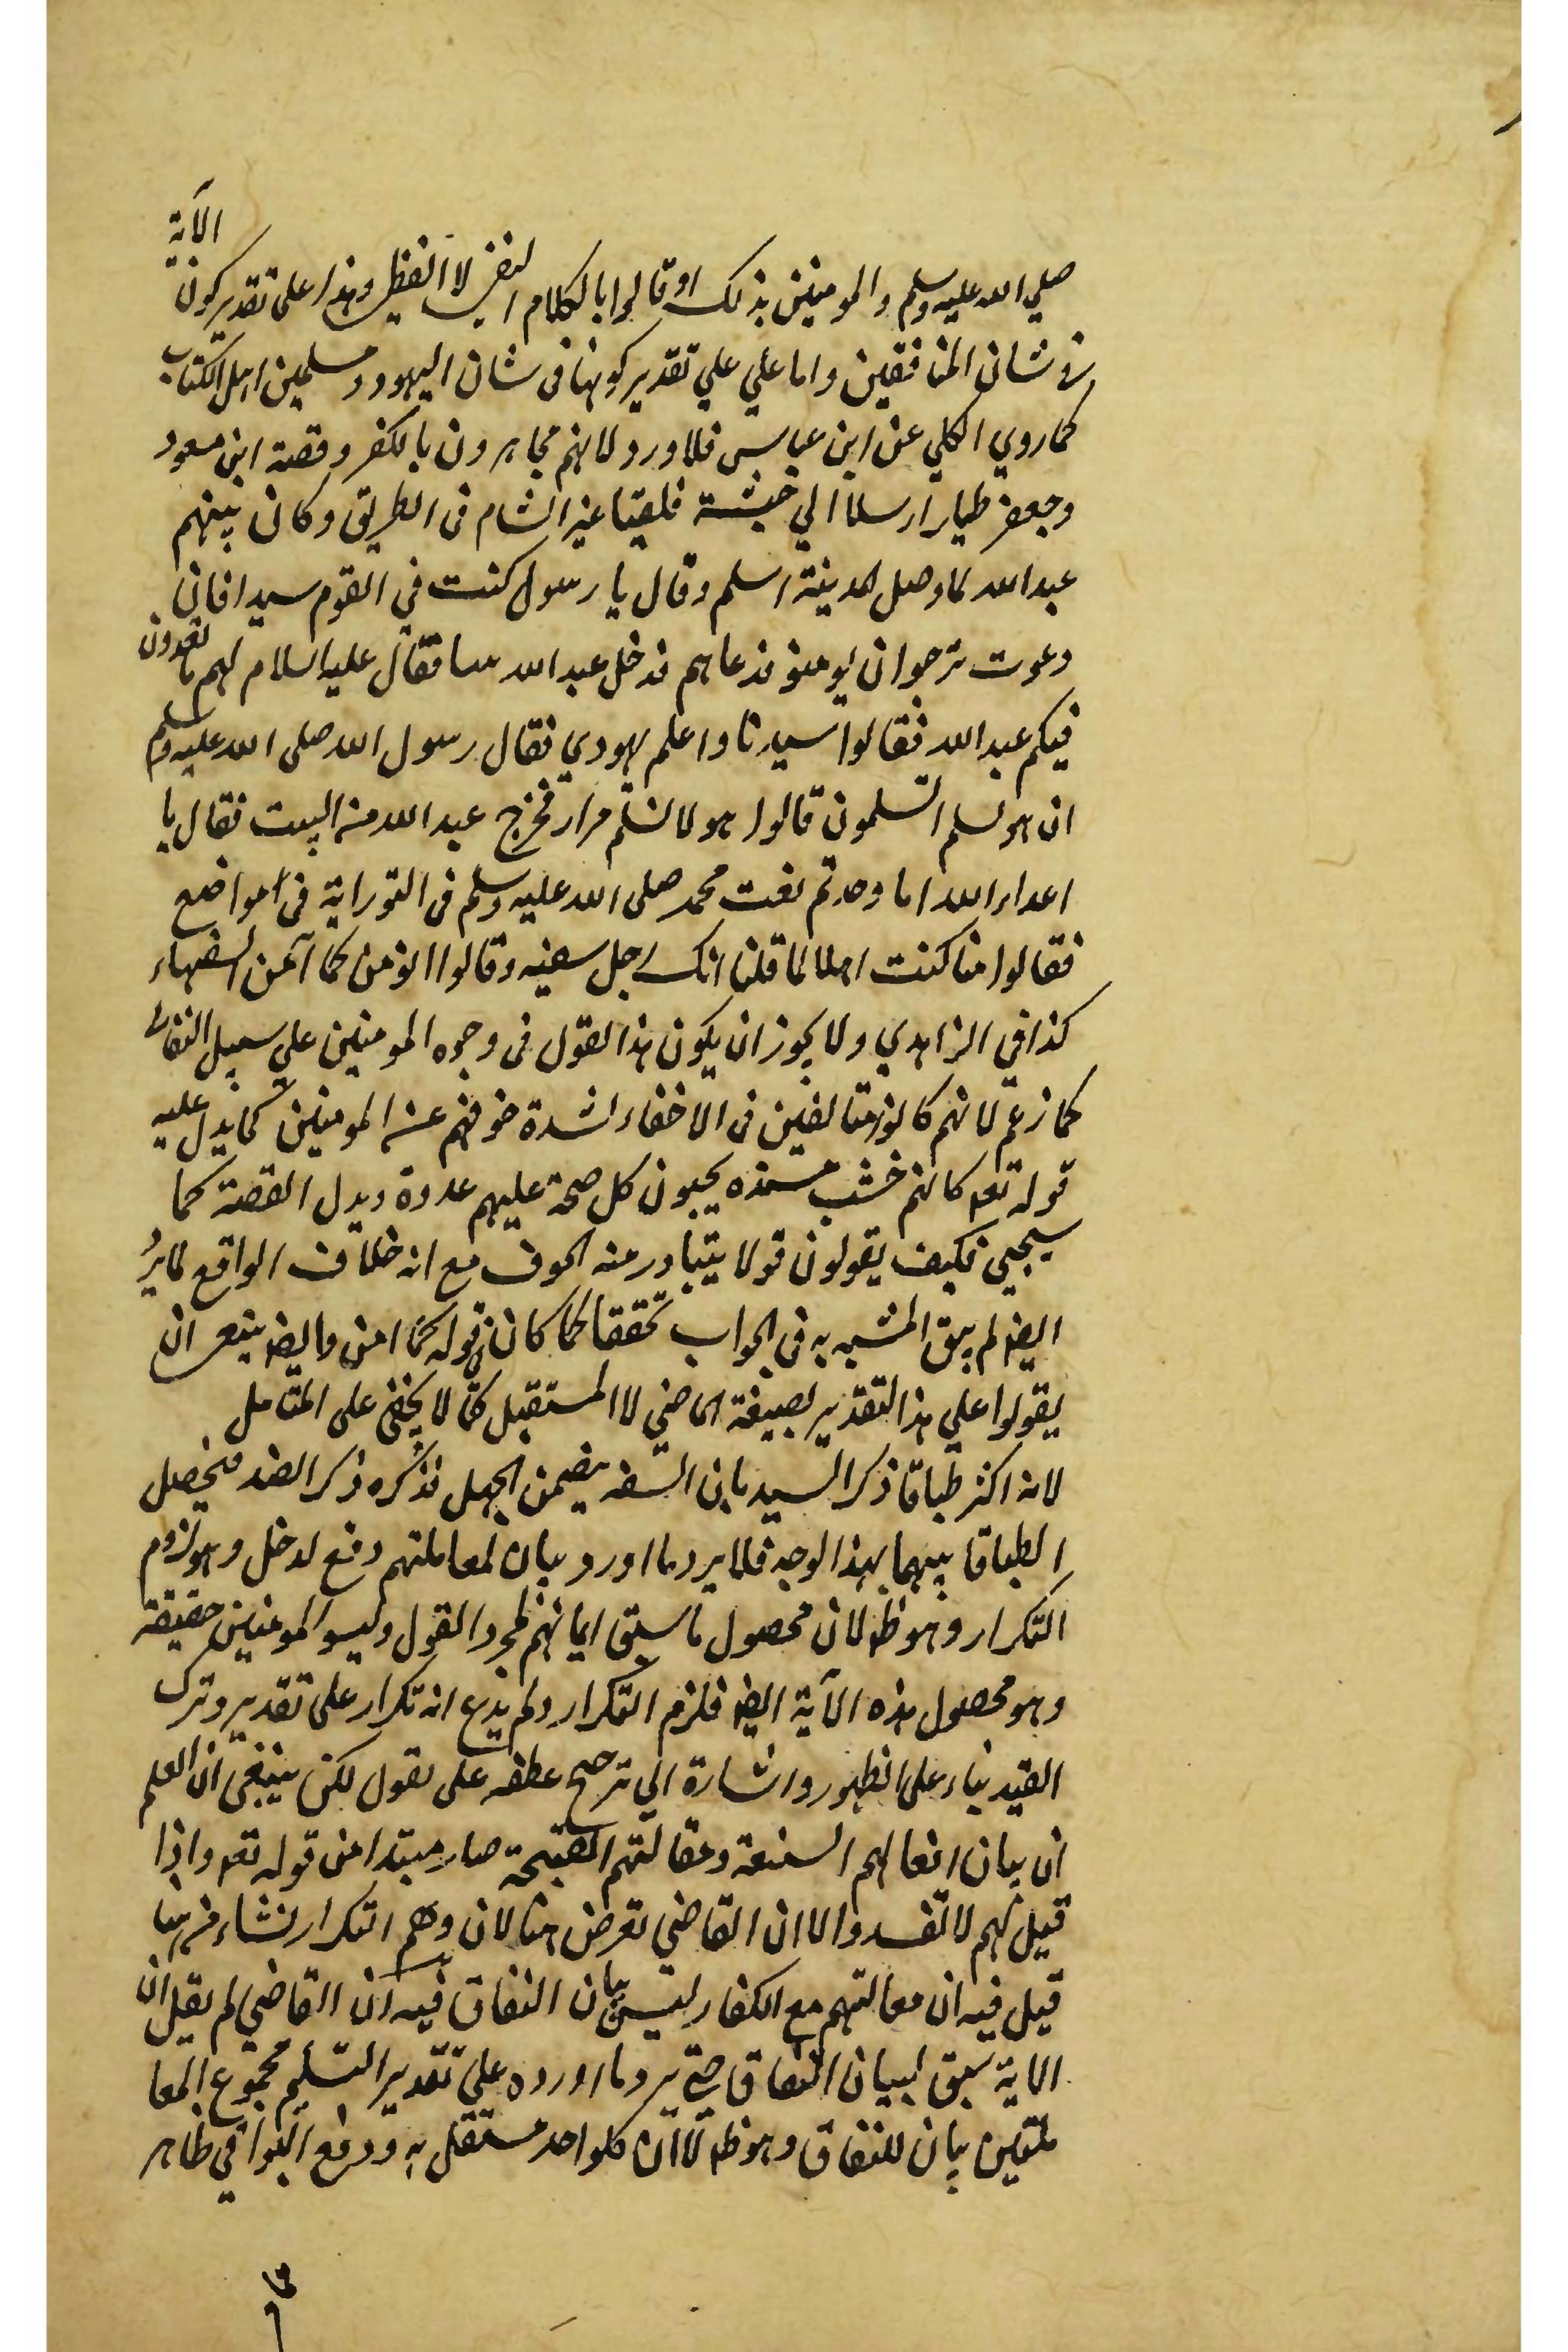 الآية
صلي الله عليه وسلم والمومنين بذلك او قالوا بالكلام النفسي لا اللفظي وهذا علي تقدير كون
في شان المنافقين واما علي علي تقدير كونها في شان اليهود ومسلمين اهل الكتاب
كما روي الكلبي عن ابن عباس فلا ورود لانهم مجاهرون بالكفر وقصة ابن مسعود
وجعفر طيار ارسلا الي حبشة فلقيا عير الشام في الطريق وكان بينهم
عبد الله لما وصل المدينة اسلم وقال يا رسول كنت في القوم سيدا فان
دعوت نرجوا ان يومنو فدعاهم فدخل عبد الله فقال عليه السلام لهم ما تعدون
فيكم عبد الله فقالوا سيدنا واعلم يهودي فقال رسول الله صلي الله عليه وسلم
ان هو تسلم اتسلمون قالوا هو لا تسلم مرار فخرج عبد الله من البيت فقال يا
اعداء الله اما وجدتم نعت محمد صلي الله عليه وسلم في التوراية في مواضع
فقالوا منا كنت اهلا لما قلنا انك رجل سفيه وقالوا انومن كما آمن السفهاء
كذا في الزاهدي ولا يجوز ان يكون هذا القول في وجوه المومنين علي سبيل النفاق
كما زعم لانهم كانوا متالفين في الاخفاء لشدة خوفهم عن المومنين كما يدل عليه
قوله تعه كانهم خشب مسنده يحسبون كل صيحة عليهم عدوة ويدل القصة كما
سيجي فكيف يقولون قولا يتبادر منه الخوف مع انه خلاف الواقع لما يرد
ايضه لم يبق المشبه به في الجواب تحققا كما كان في قوله كما امن وايضه ينبغي ان
يقولوا علي هذا التقدير بصيغة الماضي لا المستقبل كما لا يخفي علي المتامل
لانه اكثر طباقا ذكر السيد بان السفه يتضمن الجهل فذكره ذكر الضد فيحصل
الطباقا بينهما بهذا الوجه فلا يرد ما اورد بيان لمعاملتهم دفع لدخل وهو لزوم
التكرار وهو ظه لان محصول ما سبق ايمانهم لمجرد القول وليسو المومنين حقيقة
وهو محصول هذه الآية ايضه فلزم التكرار ولم يدع انه تكرار علي تقدير وترك
القيد بناء علي الظهور واشارة الي ترجيح عطفه علي يقول لكن ينبغي ان العلم
ان بيان افعالهم الشنيعة ومقالتهم القبيحة صار مبتدا من قوله تعه واذا
قيل لهم لا تفسدوا الا ان القاضي تعرض هنا لان وهم التكرار نشاء من هنا
قيل فيه ان معاملتهم مع الكفار ليس بيان النفاق فيه ان القاضي لم يقل ان
الاية سيق لبيان النفاق حتي يرد ما اورده علي تقدير التسليم مجموع المعا
ملتين بيان للنفاق وهو ظه لا ان كلواحد مستقل به ودفع البواقي ظاهر